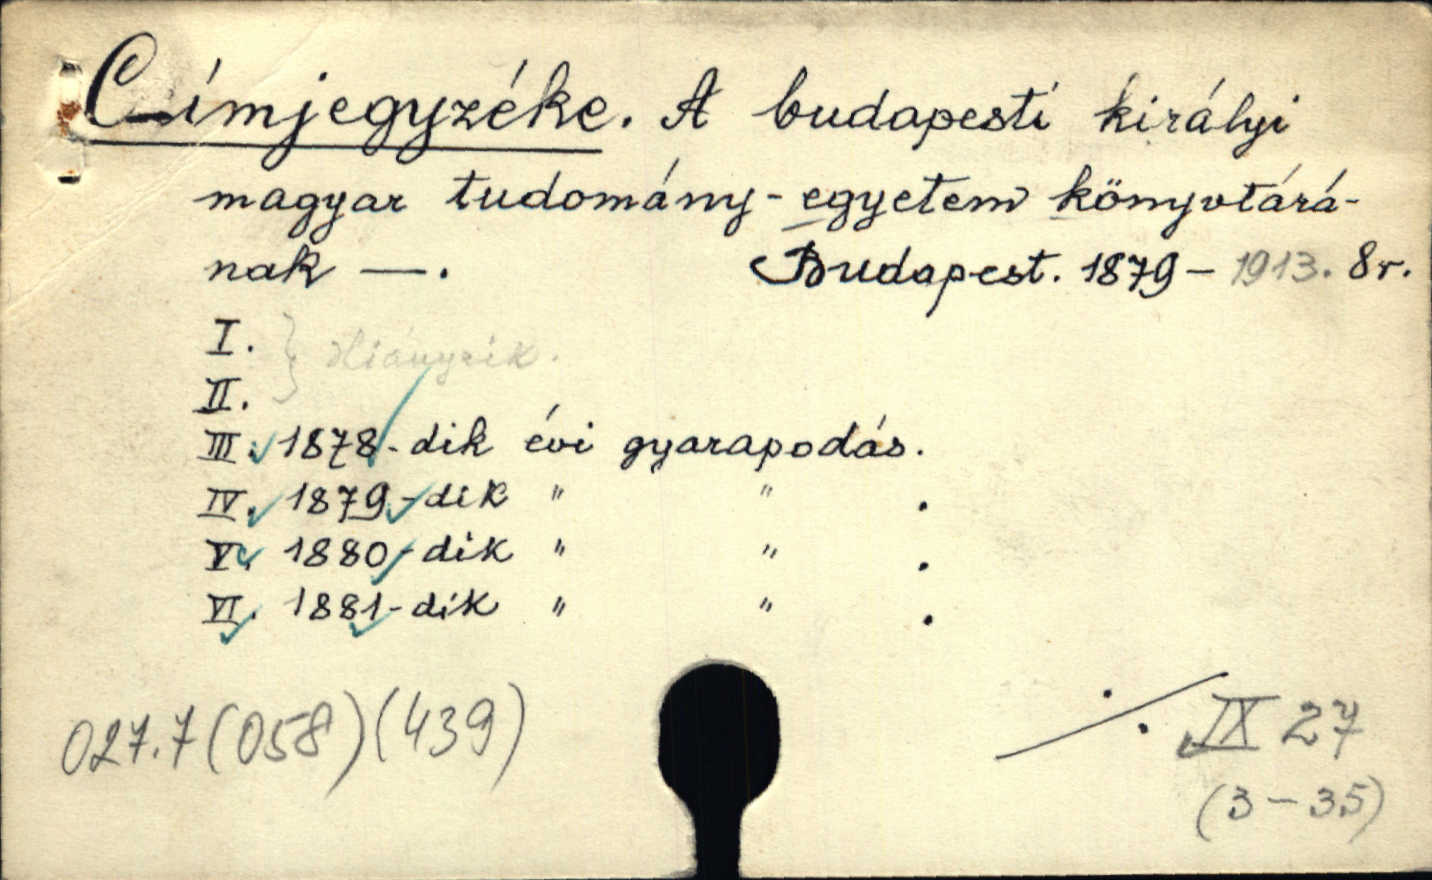 Címjegyzéke. A budapesti királyi
magyar tudomány-egyetem könyvtárá-
nak —. Budapest. 1879 – 1913. 8r.
I.
II. } Hiányzik.
III. 1878-dik évi gyarapodás.
IV. 1879-dik " " .
V. 1880-dik " " .
VI. 1881-dik " " .
027.7(058)(439)
IX 27
(3-35)